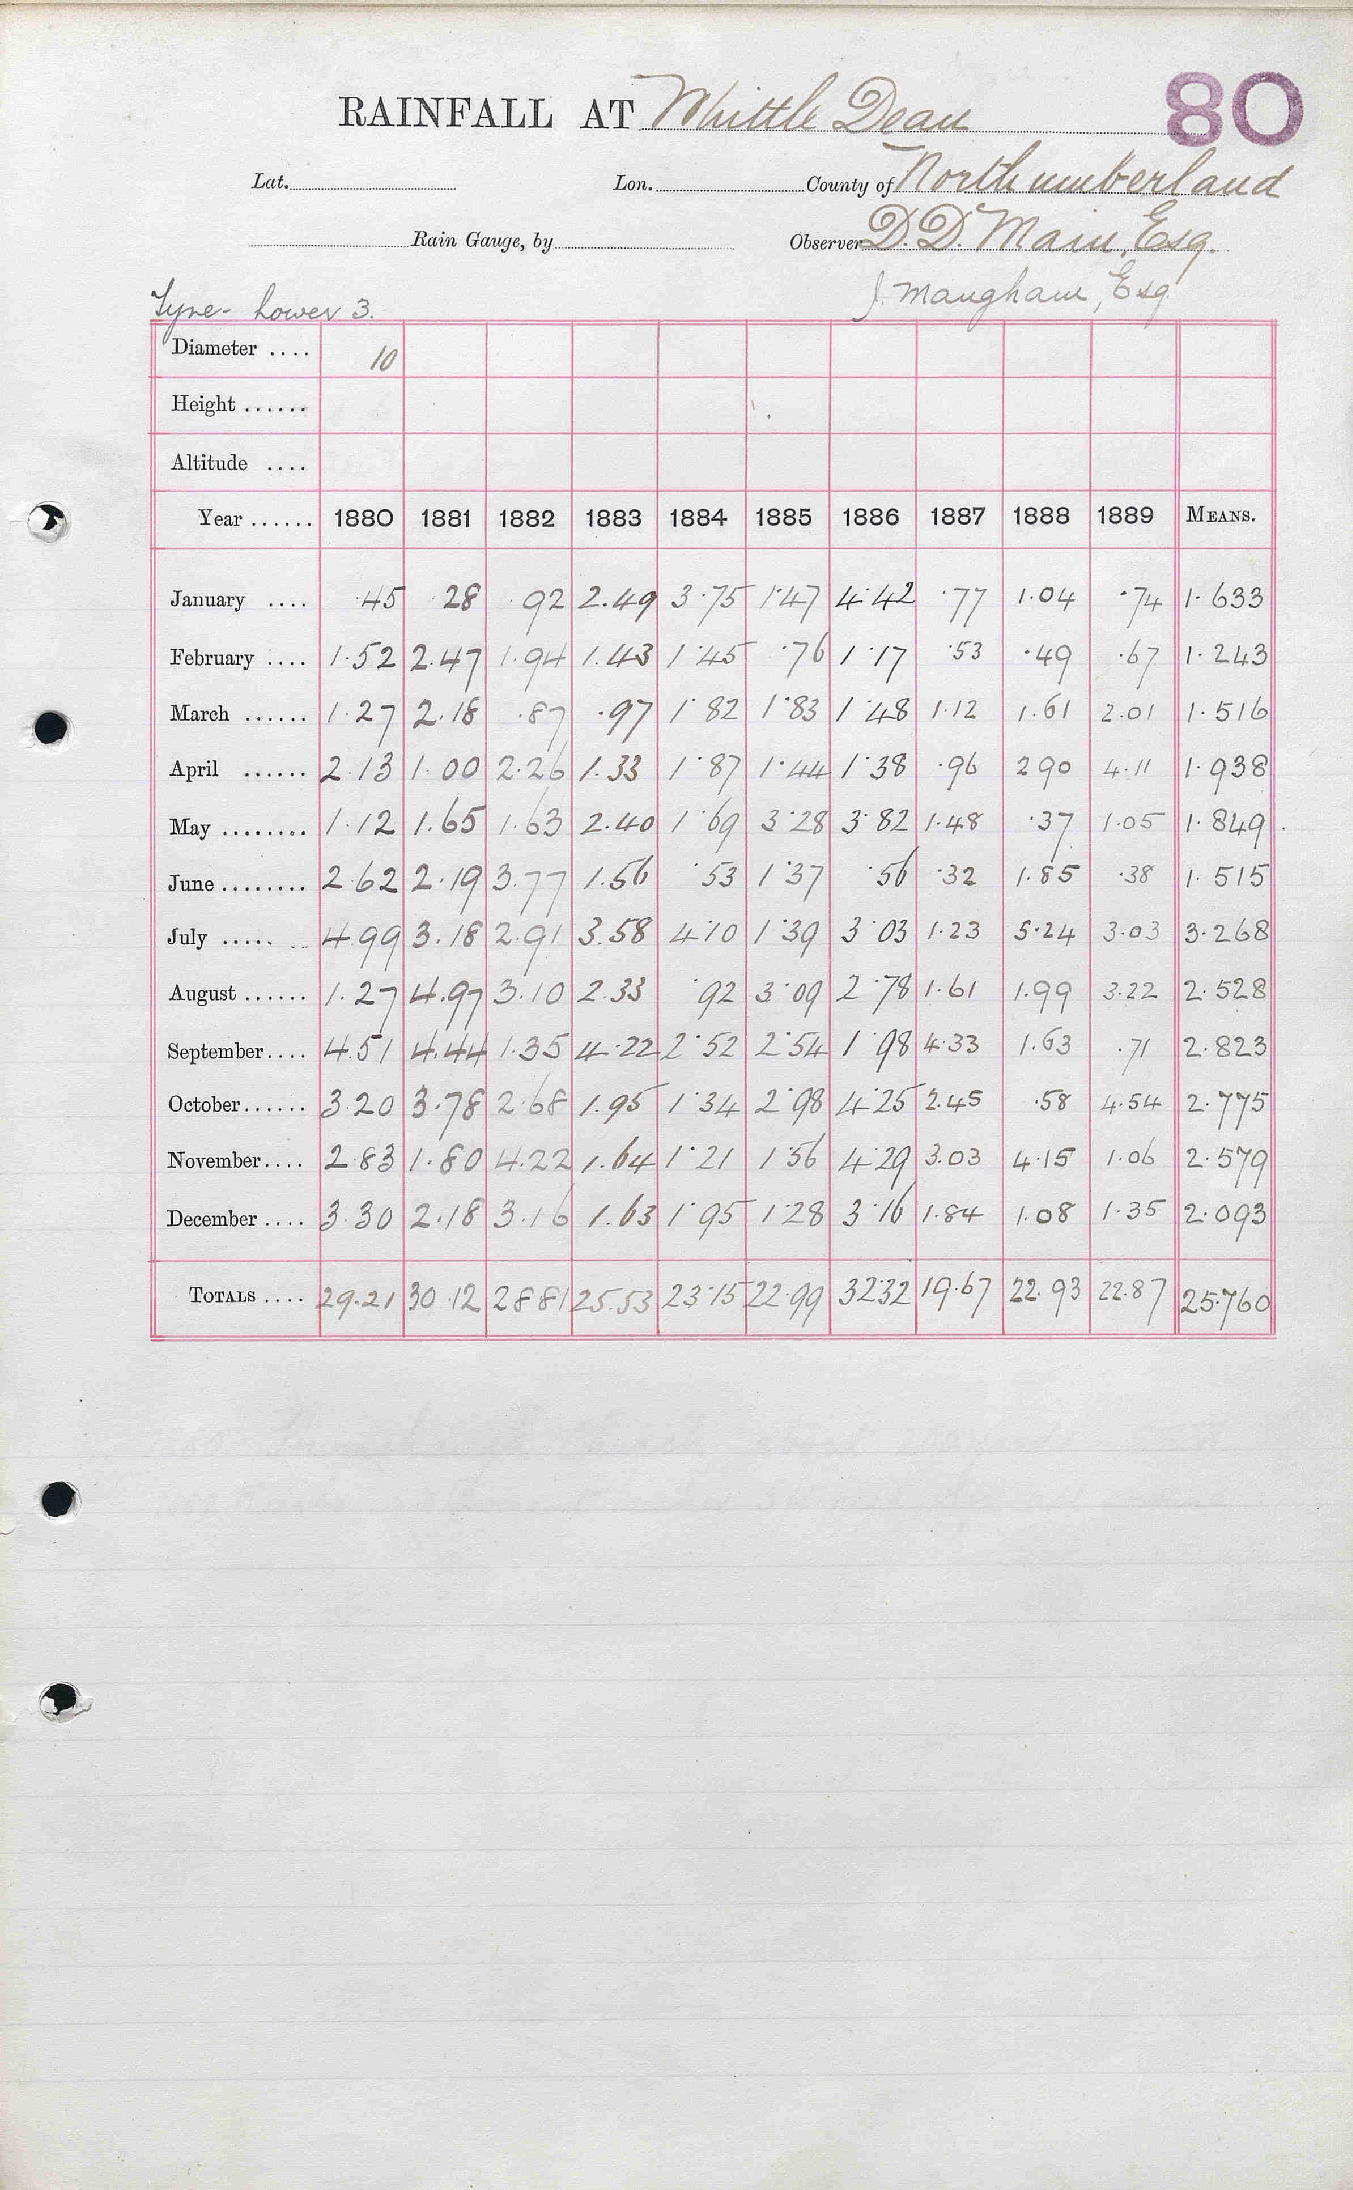 80
RAINFALL AT Whittle Dean
Lat. Lon. County of Northumberland
Rain Gauge, by Observer D. D. Main, Esq.
Tyne - Lower 3. J. Maugham, Esq
Diameter .... 10
Height ......
Altitude ....
Year ...... 1880 1881 1882 1883 1884 1885 1886 1887 1888 1889 MEANS.
January .... .45 28 .92 2.49 3.75 1.47 4.42 .77 1.04 .74 1.633
February .... 1.52 2.47 1.94 1.43 1.45 .76 1.17 .53 .49 .67 1.243
March ...... 1.27 2.18 .87 .97 1.82 1.83 1.48 1.12 1.61 2.01 1.516
April ...... 2.13 1.00 2.26 1.33 1.87 1.44 1.38 .96 2 90 4.11 1.938
May ........ 1.12 1.65 1.63 2.40 1.69 3.28 3.82 1.48 .37 1.05 1.849
June ........ 2.62 2.19 3.77 1.56 .53 1.37 .56 .32 1.85 .38 1.515
July ..... 4.99 3.18 2.91 3.58 4.10 1.39 3.03 1.23 5.24 3.03 3.268
August ...... 1.27 4.97 3.10 2.33 .92 3.09 2.78 1.61 1.99 3.22 2.528
September .... 4.51 4.44 1.35 4.22 2.52 2.54 1.98 4.33 1.63 .71 2.823
October ...... 3.20 3.78 2.68 1.95 1.34 2.98 4.25 2.45 .58 4.54 2.775
November .... 2.83 1.80 4.22 1.64 1.21 1.56 4.29 3.03 4.15 1.06 2.579
December .... 3.30 2.18 3.16 1.63 1.95 1.28 3.16 1.84 1.08 1.35 2.093
TOTALS .... 29.21 30.12 28 81 25.53 23.15 22.99 32.32 19.67 22.93 22.87 25.760